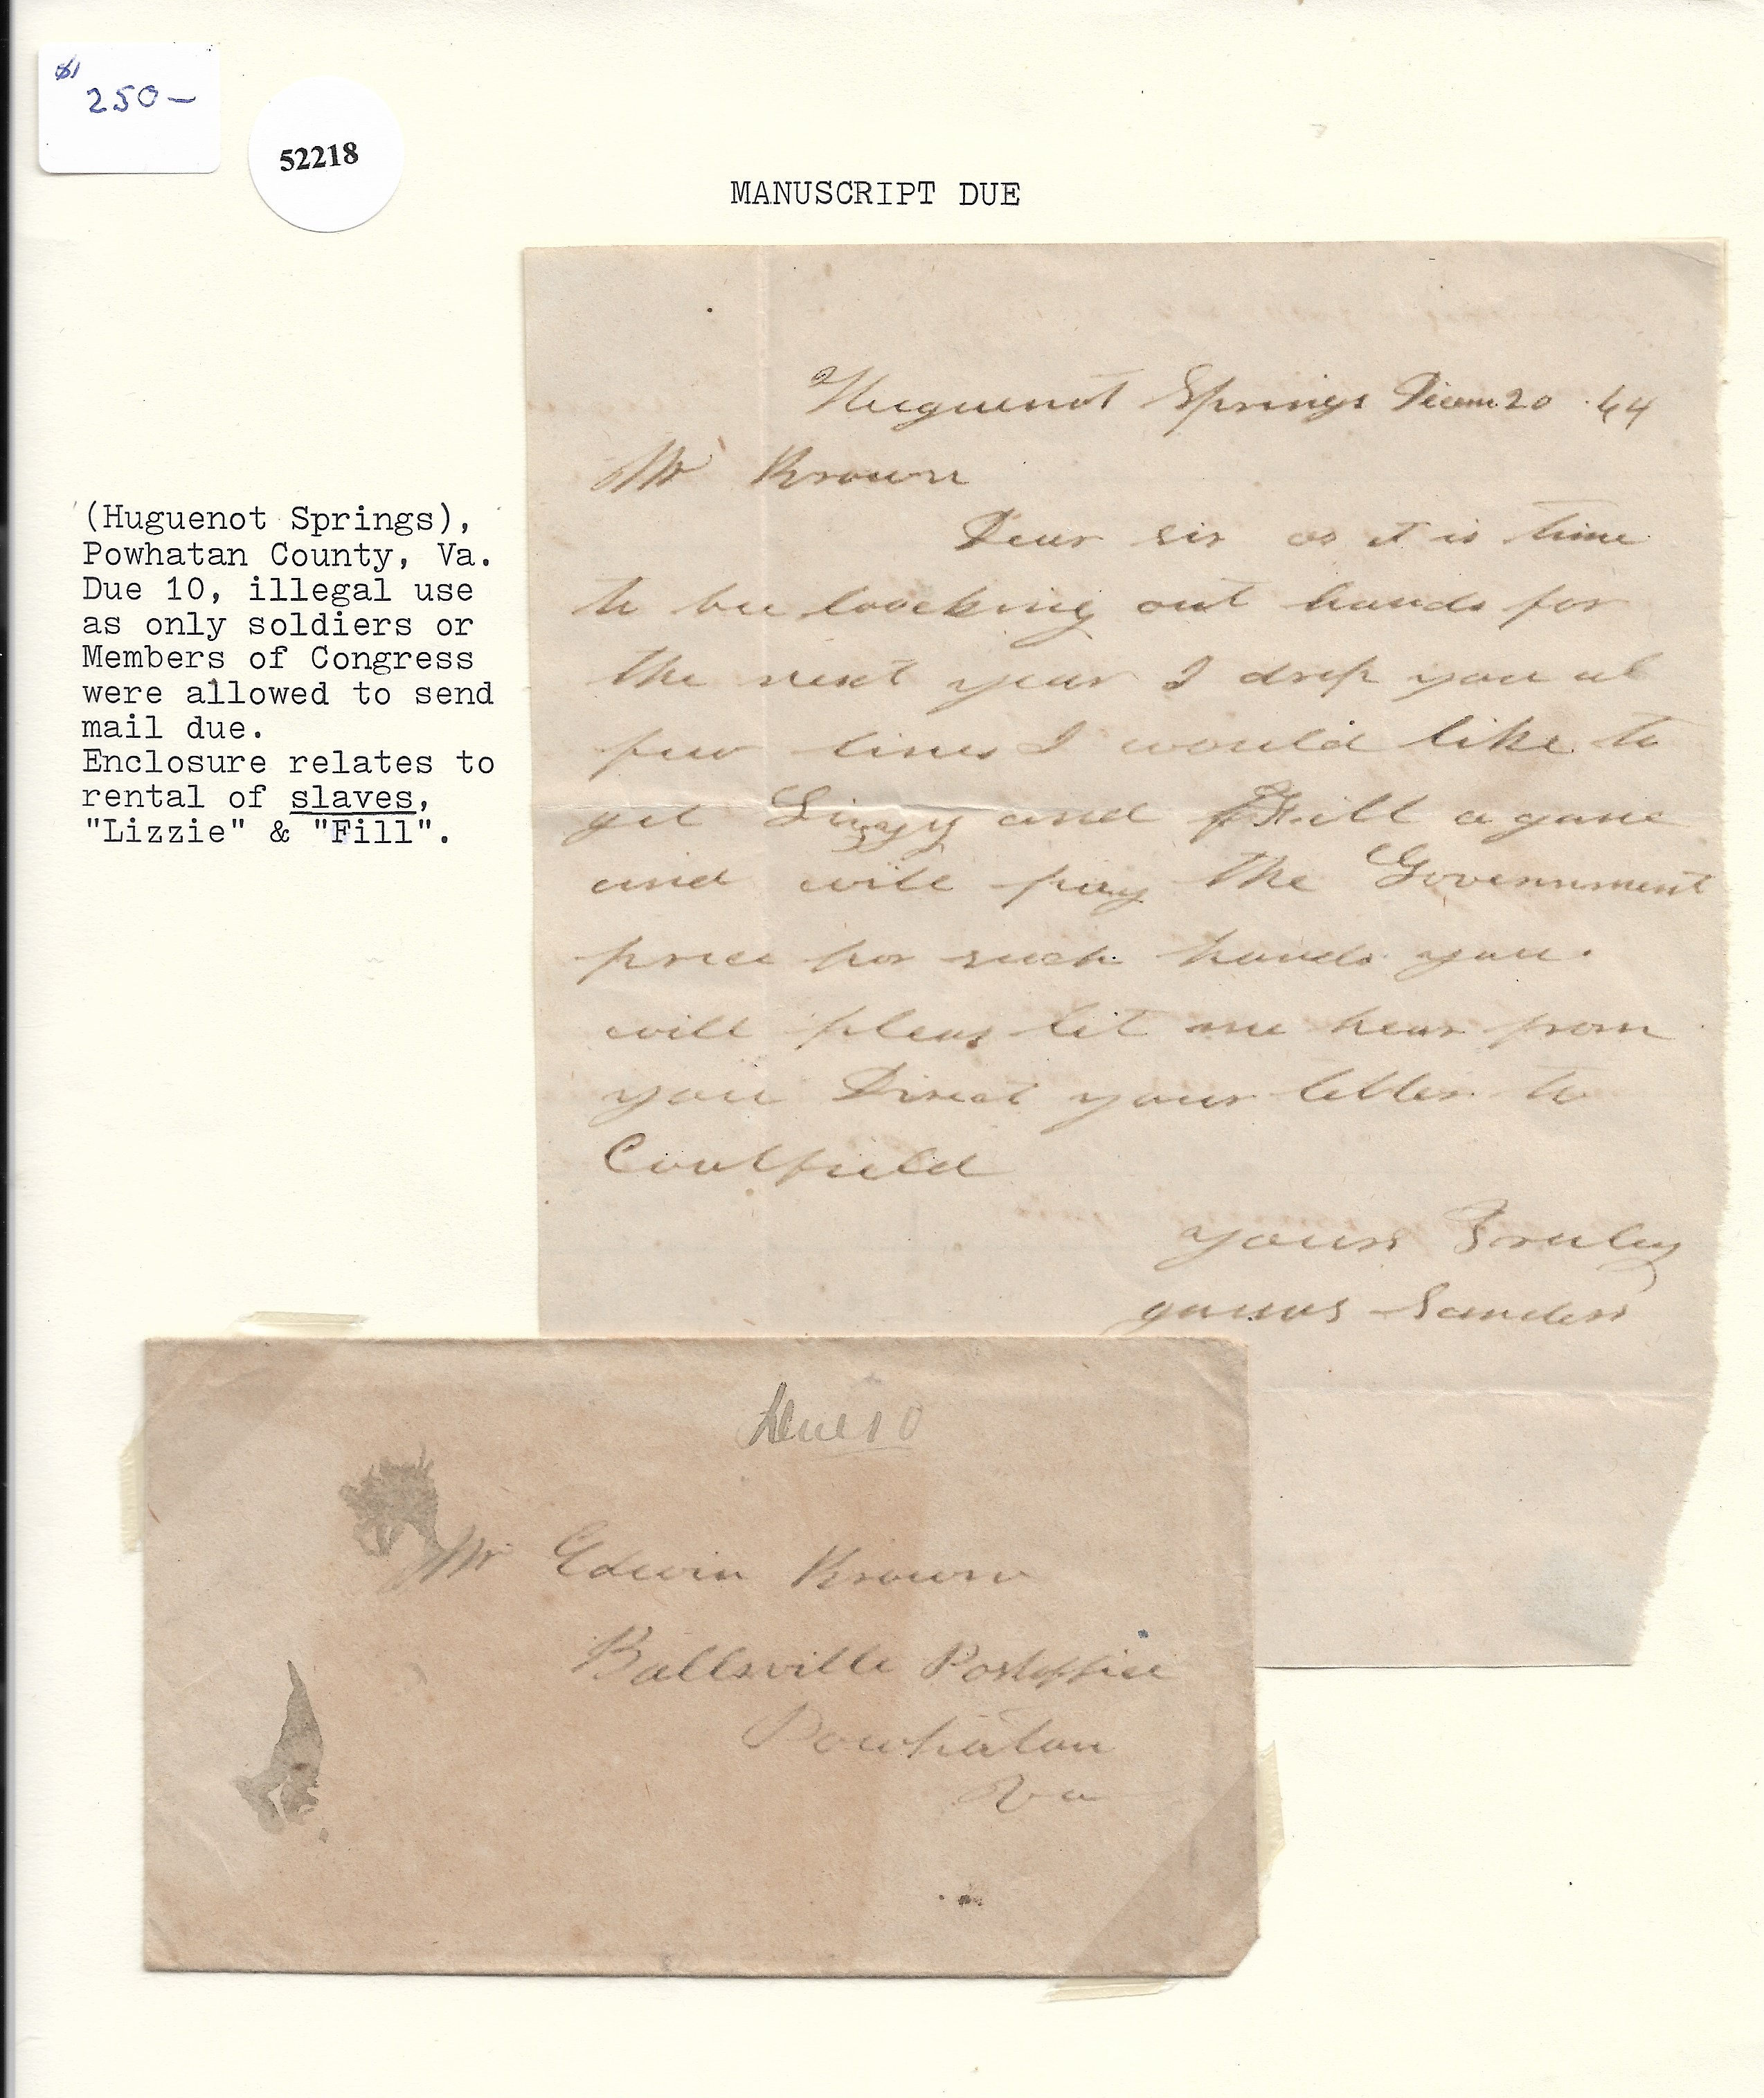 $ 250-
52218
MANUSCRIPT DUE
(Huguenot Springs),
Powhatan County, Va.
Due 10, illegal use
as only soldiers or
Members of Congress
were allowed to send
mail due.
Enclosure relates to
rental of slaves,
"Lizzie" & "Fill".
Huguenot Springs Decem 20 64
Mr Brown
Dear sir as it is time
to bee loocking out hands for
the next year I drop you a
few lines I would like to
get Lizzy and Fill agane
and will pay the Government
price for such hands you
will pleas let me hear from
you Direct your letter to
Coalfield
yours Truly
Sanders
Due 10
Mr Edwin Brown
Ballsville Postoffice
Powhatan
Va